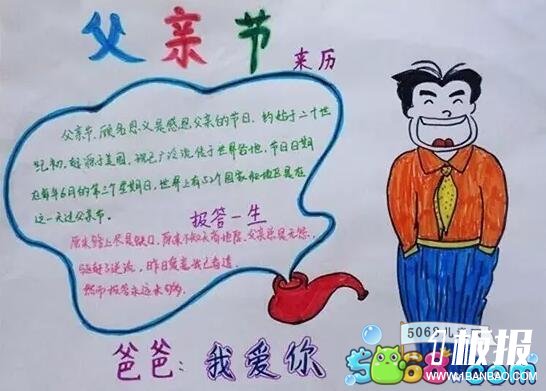 父亲节
来历
父亲节,顾名思义是感恩父亲的节日,约始于二十世
纪初,起源于美国,现已广泛流传于世界各地,节日日期
在每年6月的第三个星期日,世界上有52个国家和地区是在
这一天过父亲节。
报答一生
原来路上尽是缺口,
父亲总是无怨
昨日
然而报答永远未够
爸爸:我爱你
5068儿童
板报
WWW.1BANBAO.COM